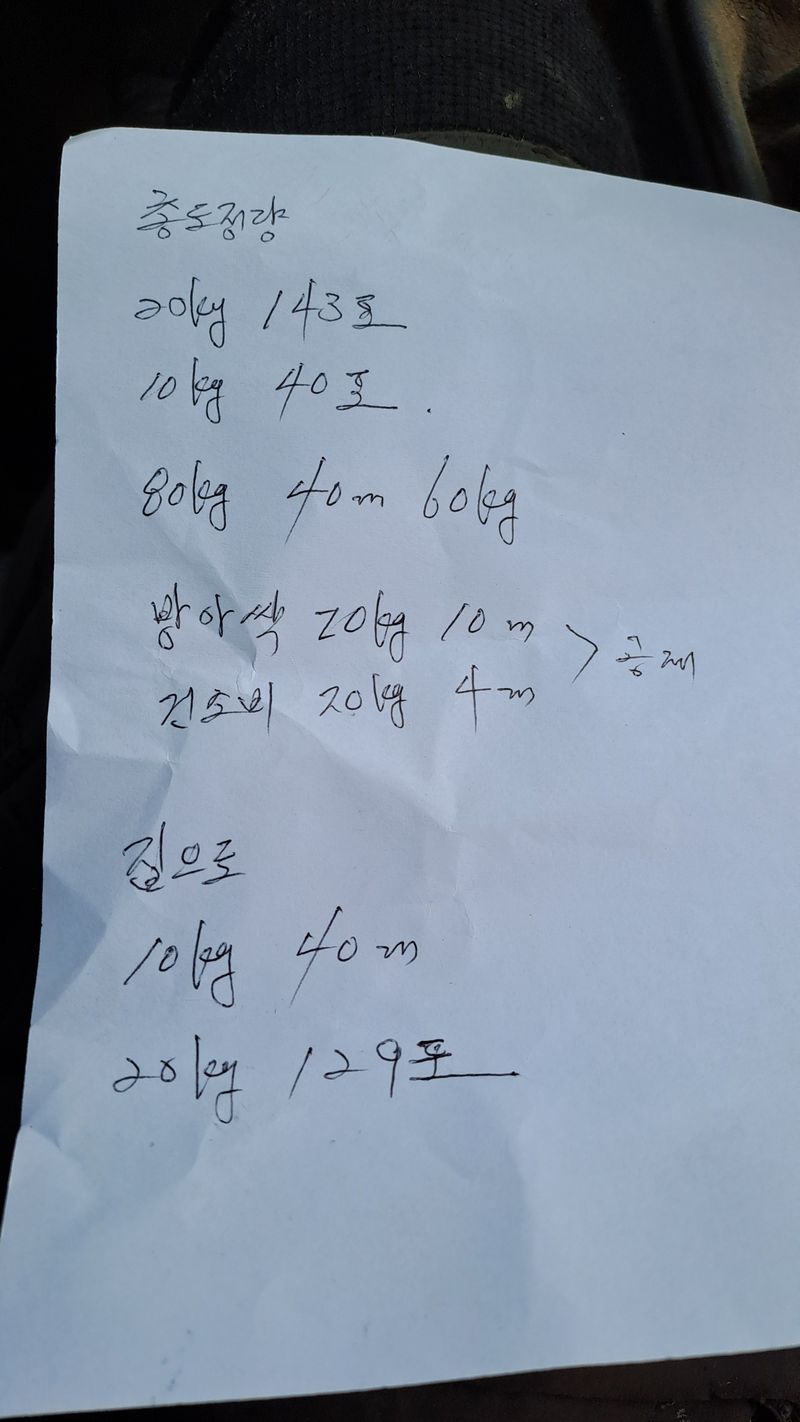 총도정량
20kg 143포
10kg 40포.
80kg 40m 60kg
방아싹 20kg 10m > 공제
건조비 20kg 4m
집으로
10kg 40m
20kg 129포